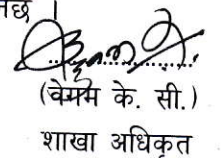 (वेगम के. सी.)
शाखा अधिकृत